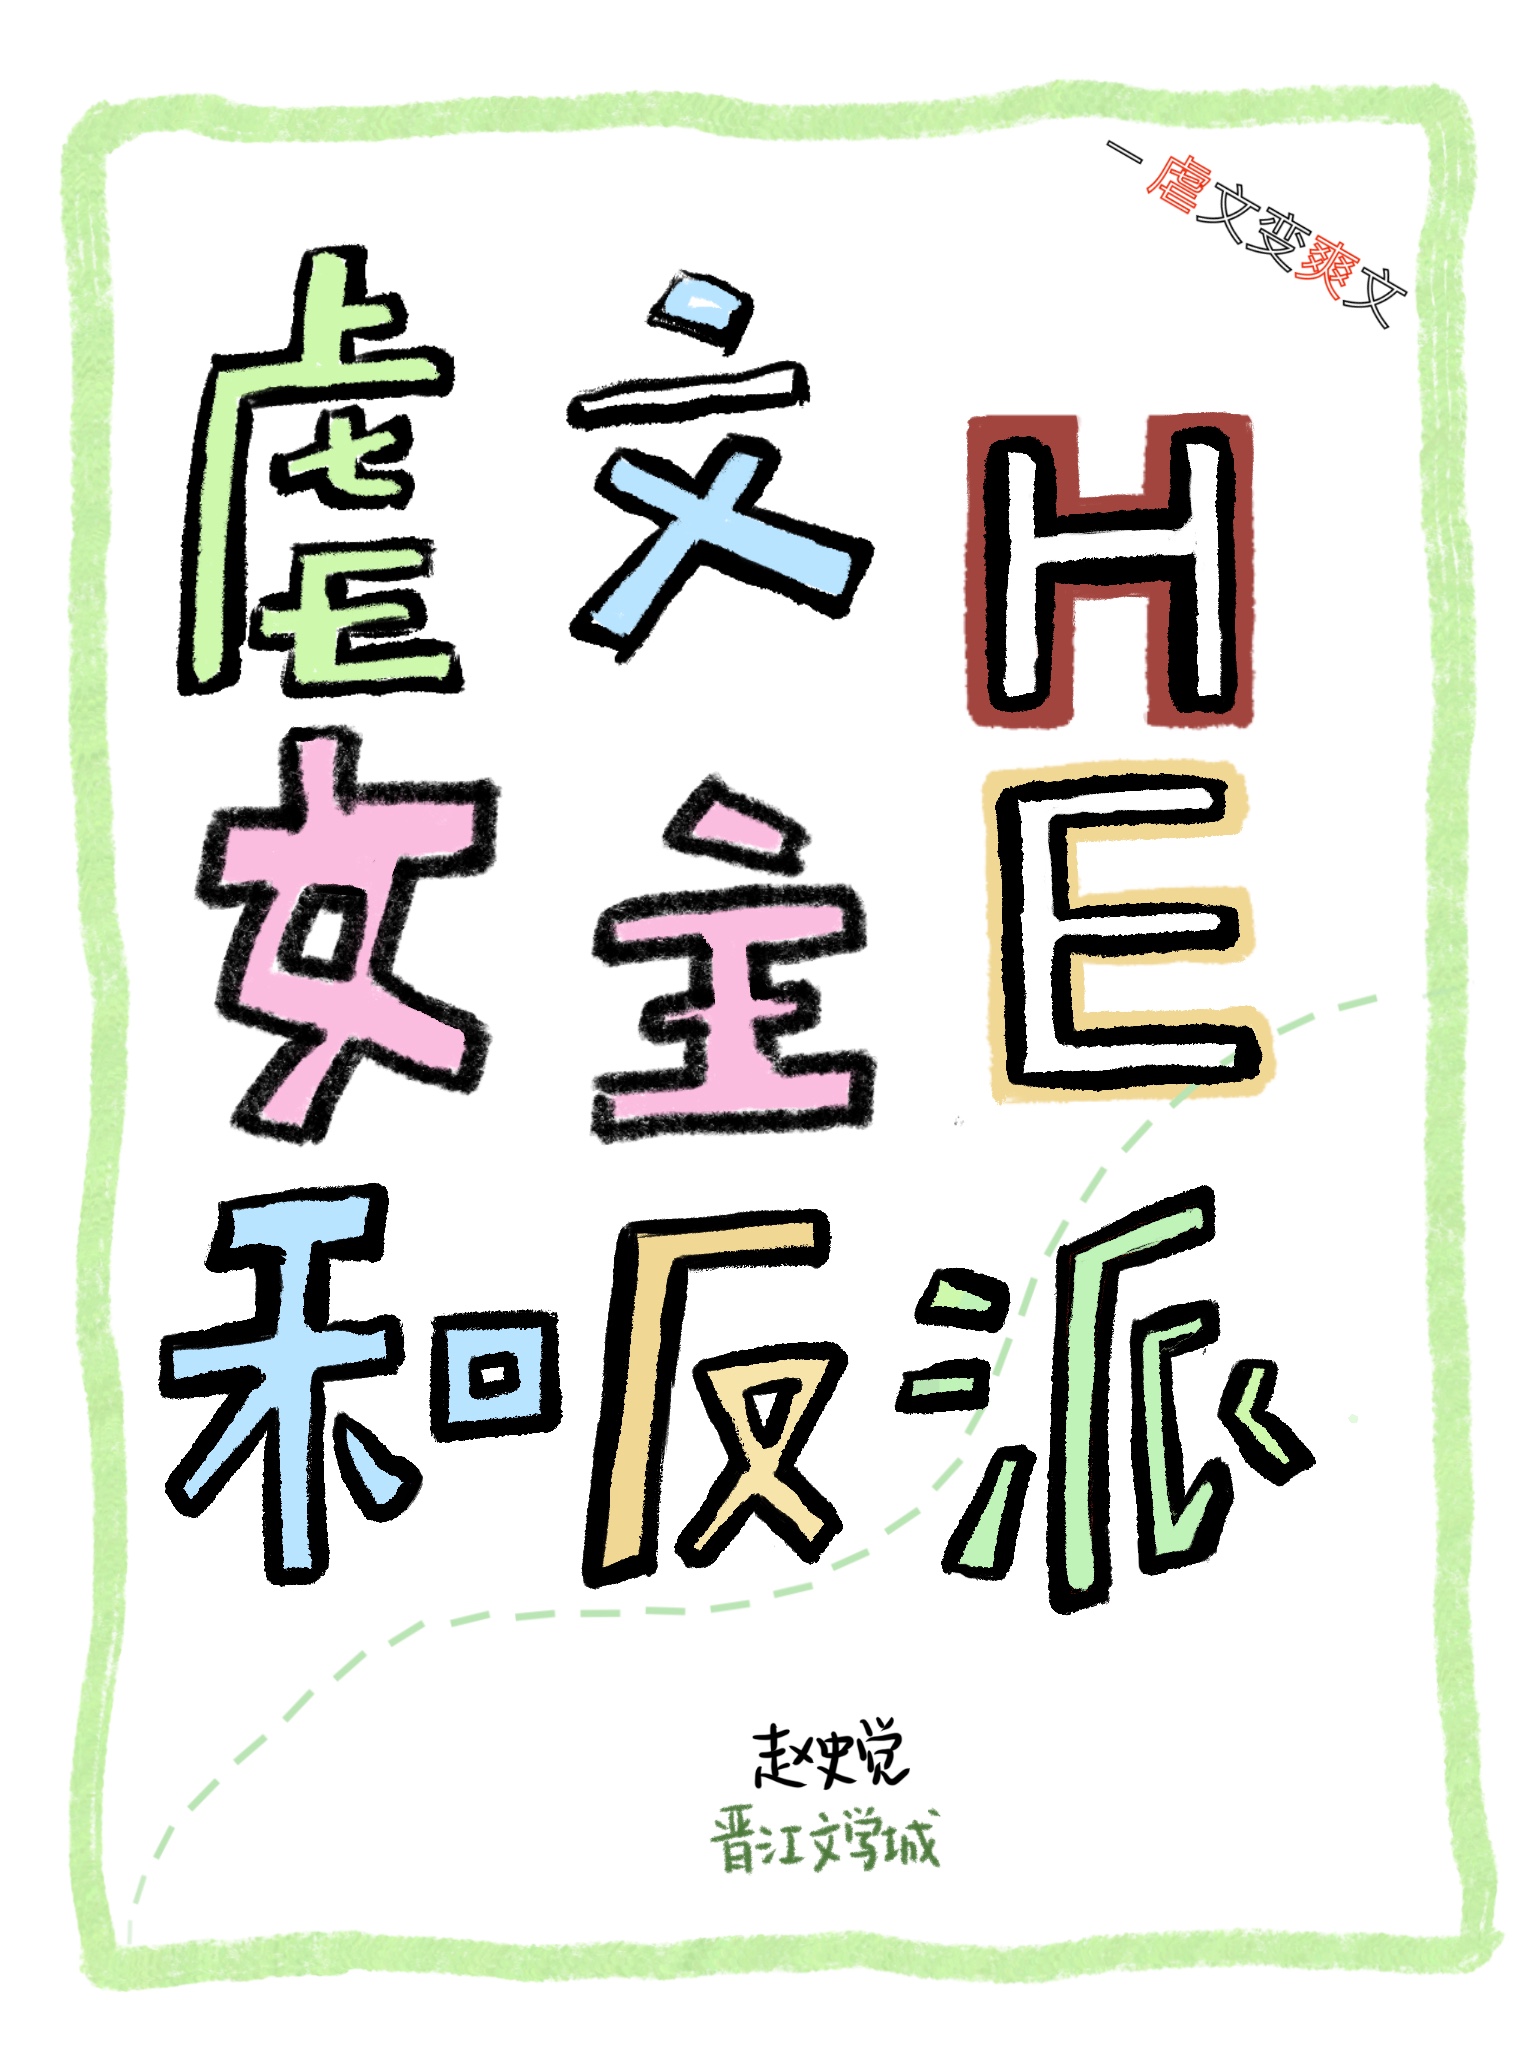 一虐文变爽文
虐文
女主
HE
和反派
赵史觉
晋江文学城